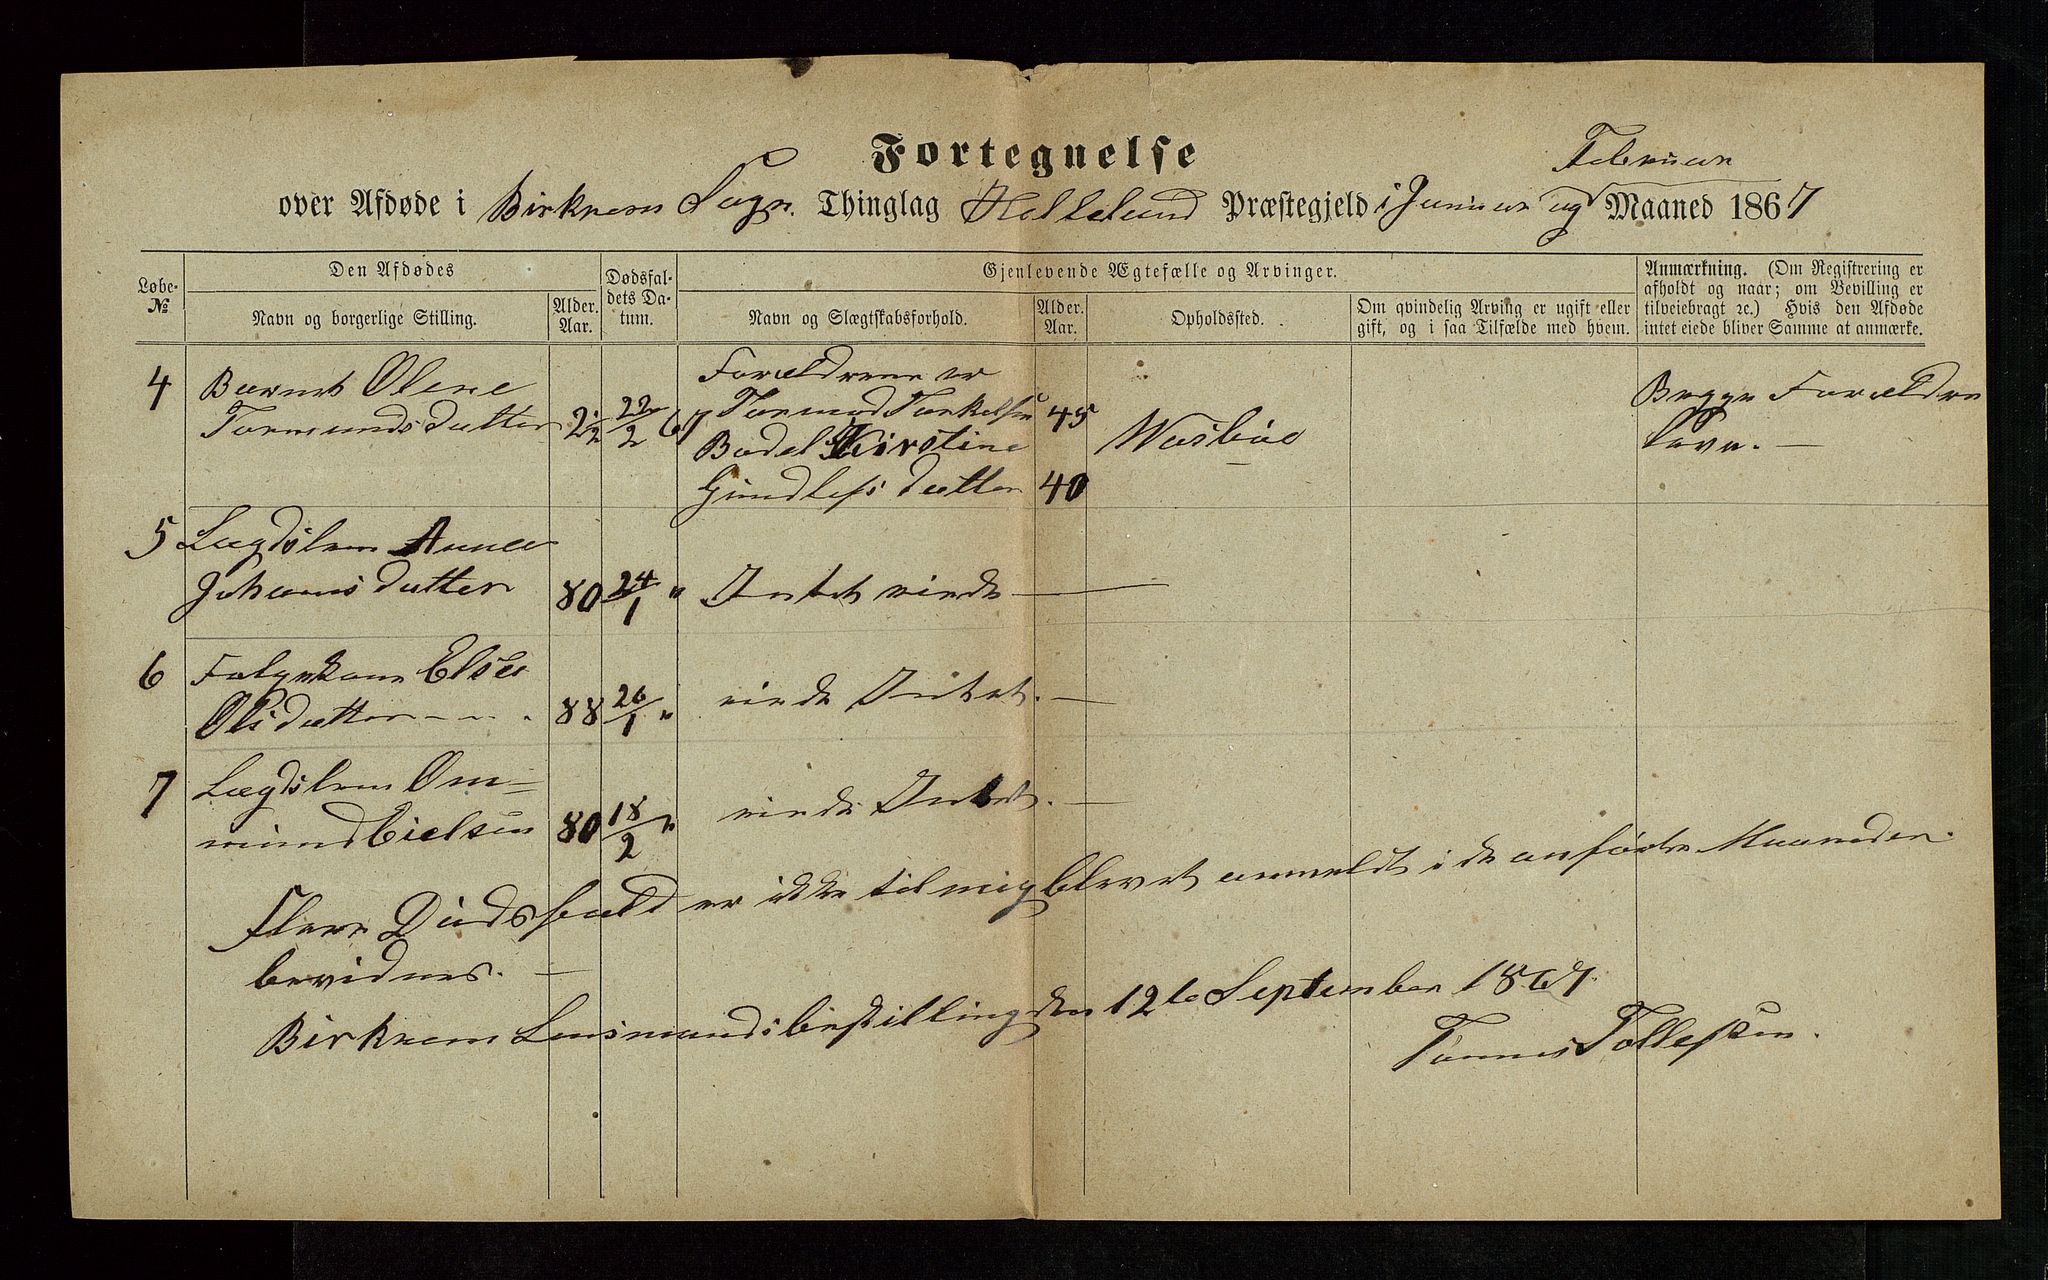 Fortegnelse
Februar
over Afdøde i Birkrem Sogn. Thinglag Helleland Præstegjeld i Januar og Maaned 1867
Løbe-
№
Den Afdødes
Navn og borgerlige Stilling.
Alder.
Aar.
Dødsfal-
dets Da-
tum.
Gjenlevende Ægtefælle og Arvinger.
Navn og Slægtskabsforhold.
Alder.
Aar.
Opholdssted.
Om qvindelig Arving er ugift eller
gift, og i saa Tilfælde med hvem.
Anmærkning. (Om Registrering er
afholdt og naar; om Bevilling er
tilveiebragt ꝛc.) Hvis den Afdøde
intet eiede bliver Samme at anmærke.
4 Barnet Olene
Tormundsdatter 2½ 22/2 67
Forældrene er
Tormod Torkelsen 45
Bodel Kirstine
Gundlefsdatter 40
Begge Forældre
leve. —
5 Lægdslem Anna
Johannsdatter 80 24/1 " Intet eiede —
6 Folgekone Else
Olsdatter - - - 88 26/1 " eiede Intet. —
7 Lægdslem Om=
mund Eielsen 80 18/2 " eiede Intet. —
Flere Dødsfald er ikke til mig blevet anmeldt i de anførte Maaneder
bevidnes. —
Birkrem Lensmandsbestilling den 12te September 1867.
Tønnes Tollefsen.